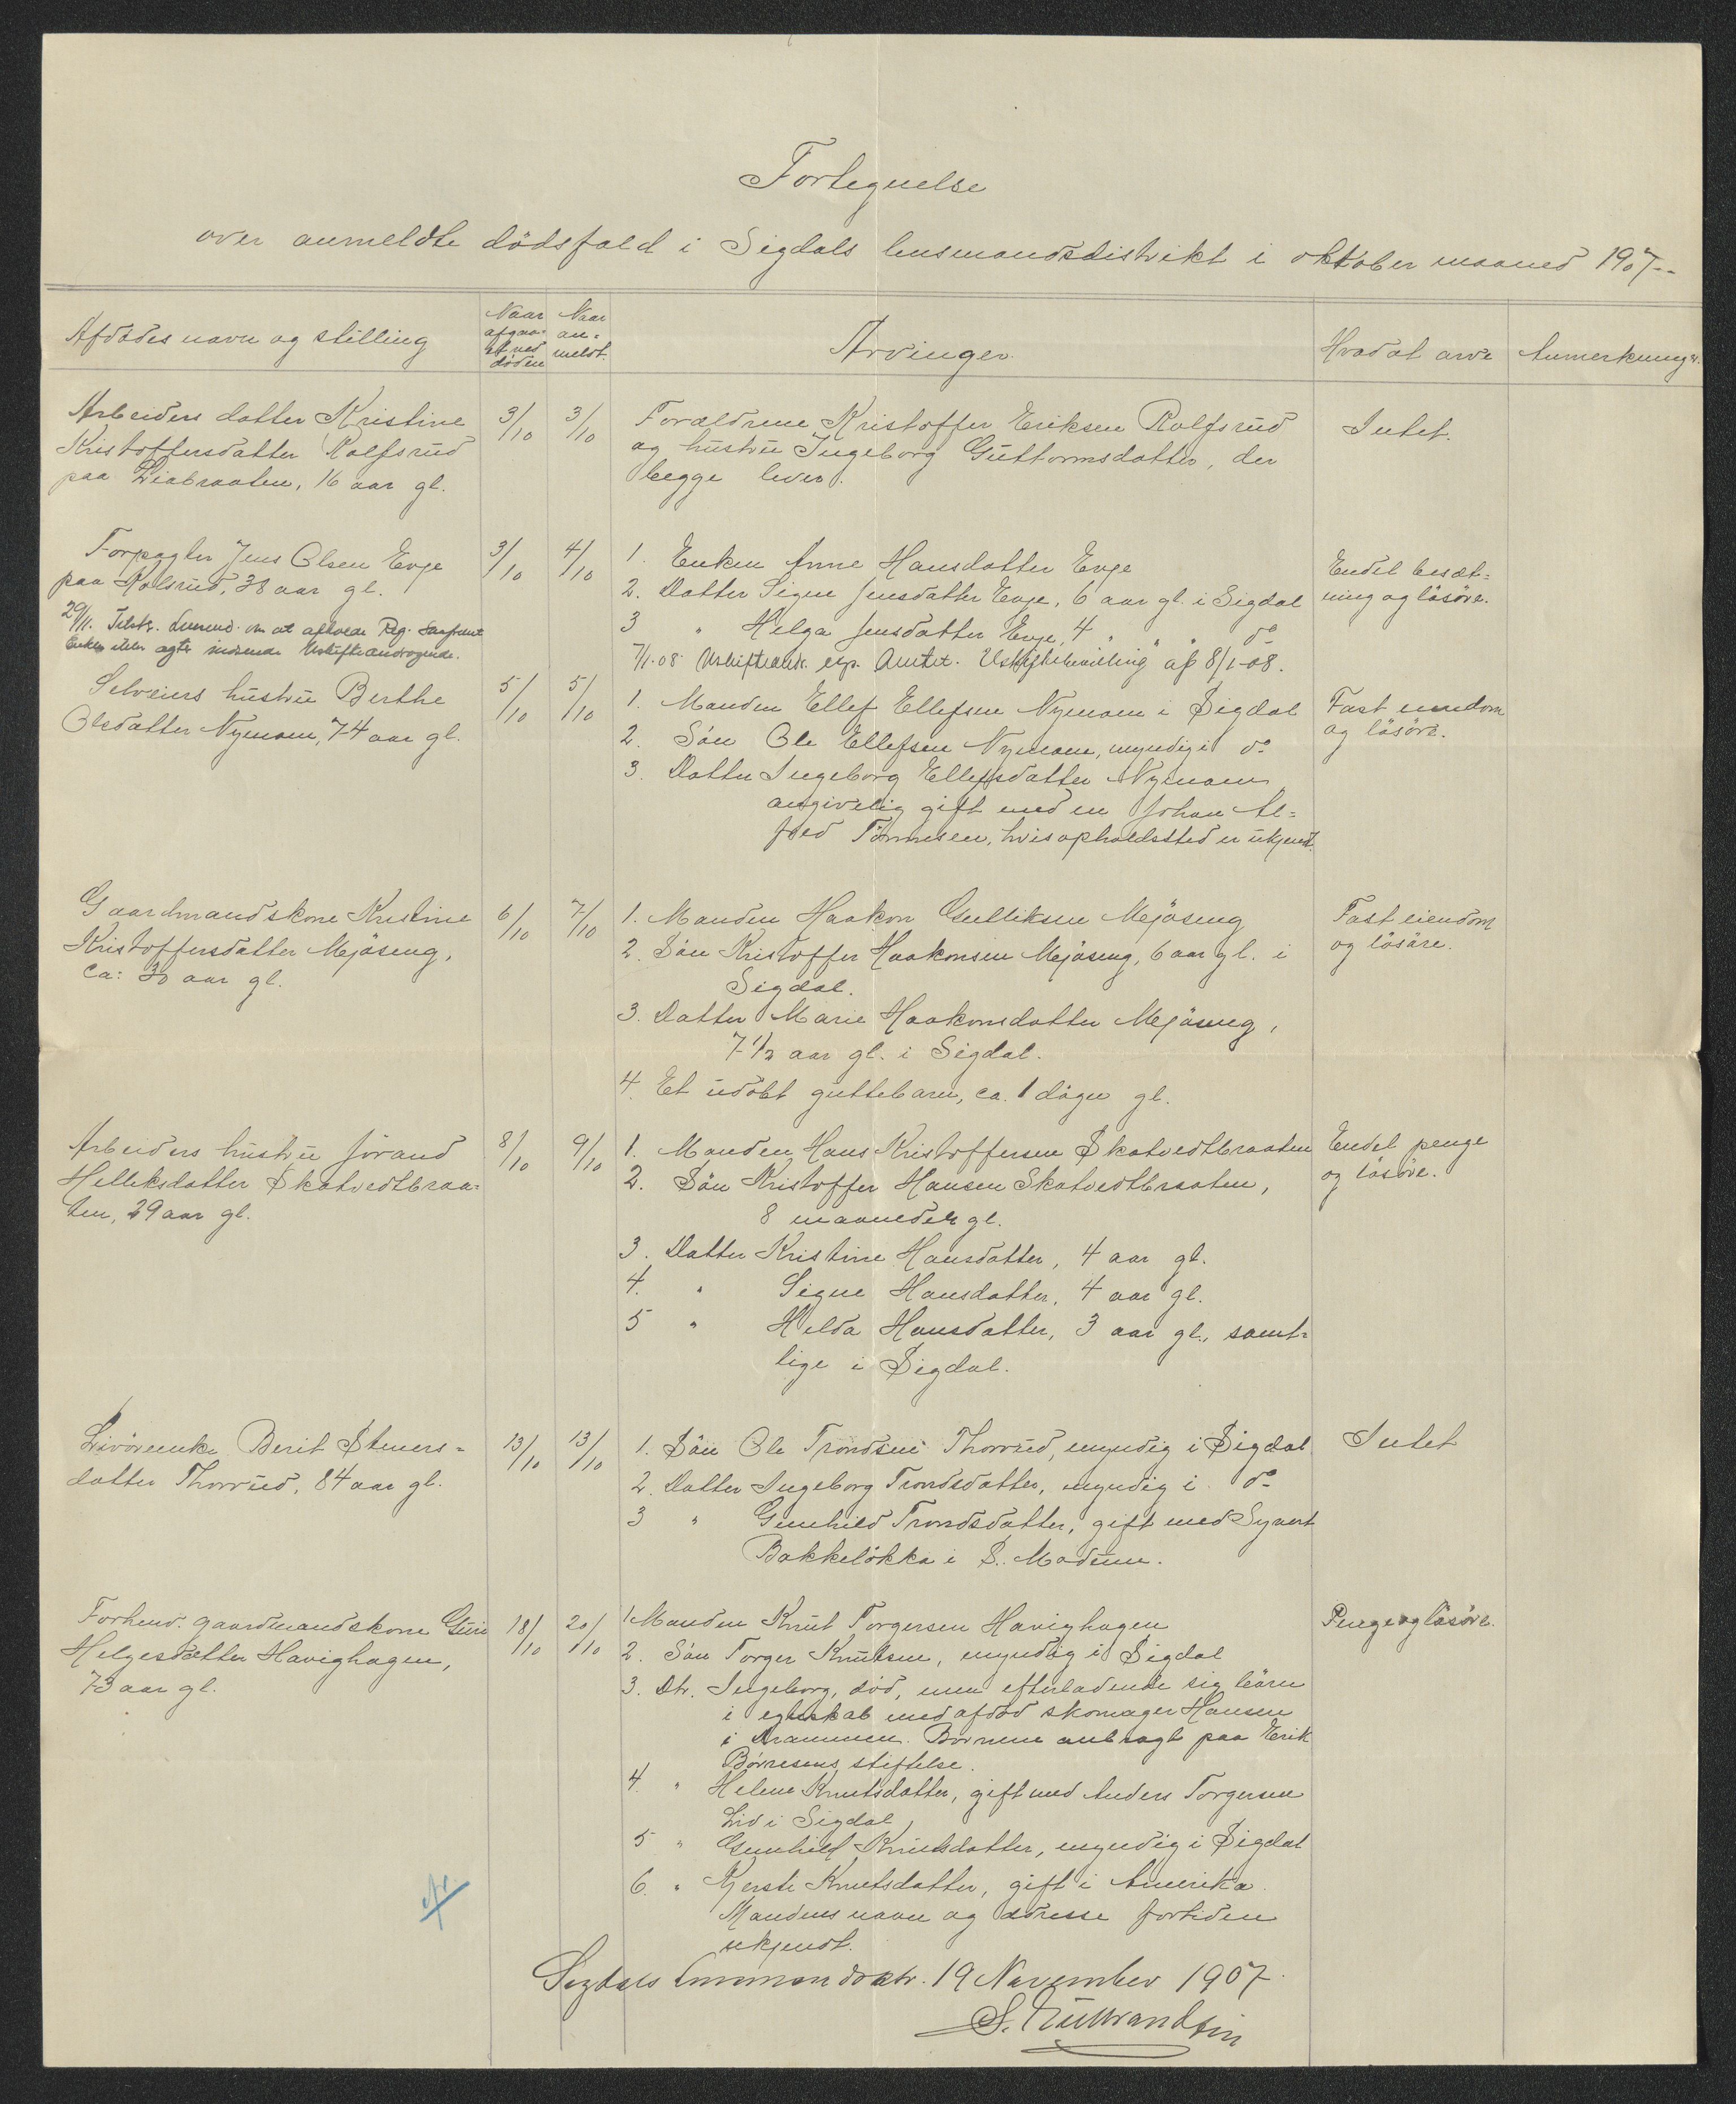 Fortegnelse
over anmeldte dödsfald i Sigdals lensmandsdistrikt i oktober maaned 1907.-
Afdödes navn og stilling
Naar afgaaet ved döden
Naar anmeldt.
Arvinger.
Hvad at arve
Anmerkninger.
Arbeiders datter Kristine
Kristoffersdatter Rolfsrud
paa Liabraaten, 16 aar gl.
3/10
3/10
Forældrene Kristoffer Eriksen Rolfsrud
og hustru Ingeborg Guttormsdatter, der
begge lever.
Intet.
Forpagter Jens Olsen Enge
paa Kolsrud, 38 aar gl.
29/11. Tilskr. Lensmd. om at afkræve Reg. Saafremt
Enken ikke agter indsende Uskifteandragende.
3/10
4/10
1. Enken Anne Hansdatter Enge
2. Datter Signe Jensdatter Enge, 6 aar gl. i Sigdal
3 " Helga Jensdatter Enge, 4 " " " do
7/1-08 Uskifteandr. exp. Amtet. Uskiftebevilling af 8/1-08.
Endel besæt=
ning og lösöre.
Selveiers hustru Berthe
Olsdatter Nymoen, 74 aar gl.
5/10
5/10
1. Manden Ellef Ellefsen Nymoen i Sigdal
2. Sön Ole Ellefsen Nymoen, myndig i do
3. Datter Ingeborg Ellefsdatter Nymoen
angivelig gift med en Johan Al=
fred Tönnesen, hvis opholdssted er ukjendt.
Fast eiendom
og lösöre.
Gaardmandskone Kristine
Kristoffersdatter Mejöseng,
ca: 30 aar gl.
6/10
7/10
1. Manden Haakon Gulliksen Mejöseng
2. Sön Kristoffer Haakonsen Mejöseng, 6 aar gl. i
Sigdal.
3. Datter Marie Haakonsdatter Mejöseng,
7 1/2 aar gl. i Sigdal.
4. Et udöbt guttebarn, ca. 1 dögn gl.
Fast eiendom
og lösöre.
Arbeiders hustru Jörand
Helleksdatter Skatvedtbraa=
ten, 29 aar gl.
8/10
9/10
1. Manden Hans Kristoffersen Skatvedtbraaten
2. Sön Kristoffer Hansen Skatvedtbraaten,
8 maaneder gl.
3. Datter Kristine Hansdatter, 4 aar gl.
4. " Signe Hansdatter, 4 aar gl.
5 " Helda Hansdatter, 3 aar gl., samt=
lige i Sigdal.
Endel penge
og lösöre.
Livöreenke Berit Steners=
datter Thorrud, 84 aar gl.
13/10
13/10
1. Sön Ole Trondsen Thorrud, myndig i Sigdal
2. Datter Ingeborg Trondsdatter, myndig i do
3 " Gunhild Trondsdatter, gift med Syvert
Bakkelökka i S. Modum.
Intet
Forhenv. gaardmandskone Guri
Helgesdatter Havighagen,
73 aar gl.
18/10
20/10
1. Manden Knut Torgersen Havighagen
2. Sön Torger Knutsen, myndig i Sigdal
3. Dtr. Ingeborg, död, men efterladende sig börn
i egteskab med afdöd skomager Hansen
i Drammen. Börnene anbragt paa Erik
Börresens stiftelse.
4. " Helene Knutsdatter, gift med Anders Torgersen
Lid i Sigdal
5 " Gunhild Knutsdatter, myndig i Sigdal
6. " Kjersti Knutsdatter, gift i Amerika.
Mandens navn og adresse fortiden
ukjendt.
Penge og lösöre.
Sigdals lensmandsktr. 19 November 1907.